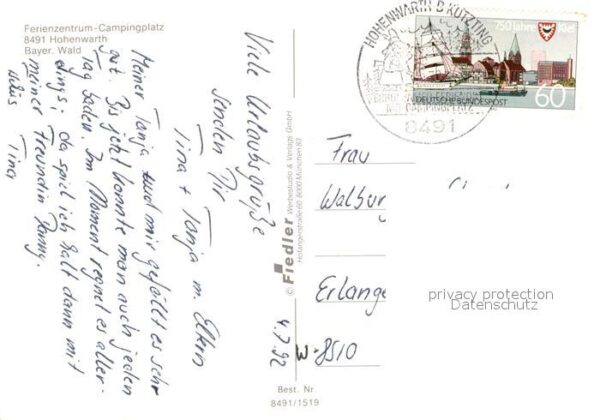 Ferienzentrum-Campingplatz
8491 Hohenwarth
Bayer. Wald
Viele Urlaubsgrüße
senden Dir
Tina + Tanja m. Eltern
Meiner Tanja und mir gefällt es sehr
gut. Bis jetzt konnte man auch jeden
Tag baden. Im Moment regnet es aller-
dings; da spiel ich halt dann mit
meiner Freundin Romy.
Tina
4.7.92
© Fiedler Werbestudio & Verlags GmbH
Hofangerstraße 60 8000 München 83
Best. Nr.
8491/1519
HOHENWARTH B KÖTZTING
8491
750 Jahre Kiel
DEUTSCHE BUNDESPOST
60
Frau
Walbur
Erlange
W-8510
privacy protection
Datenschutz